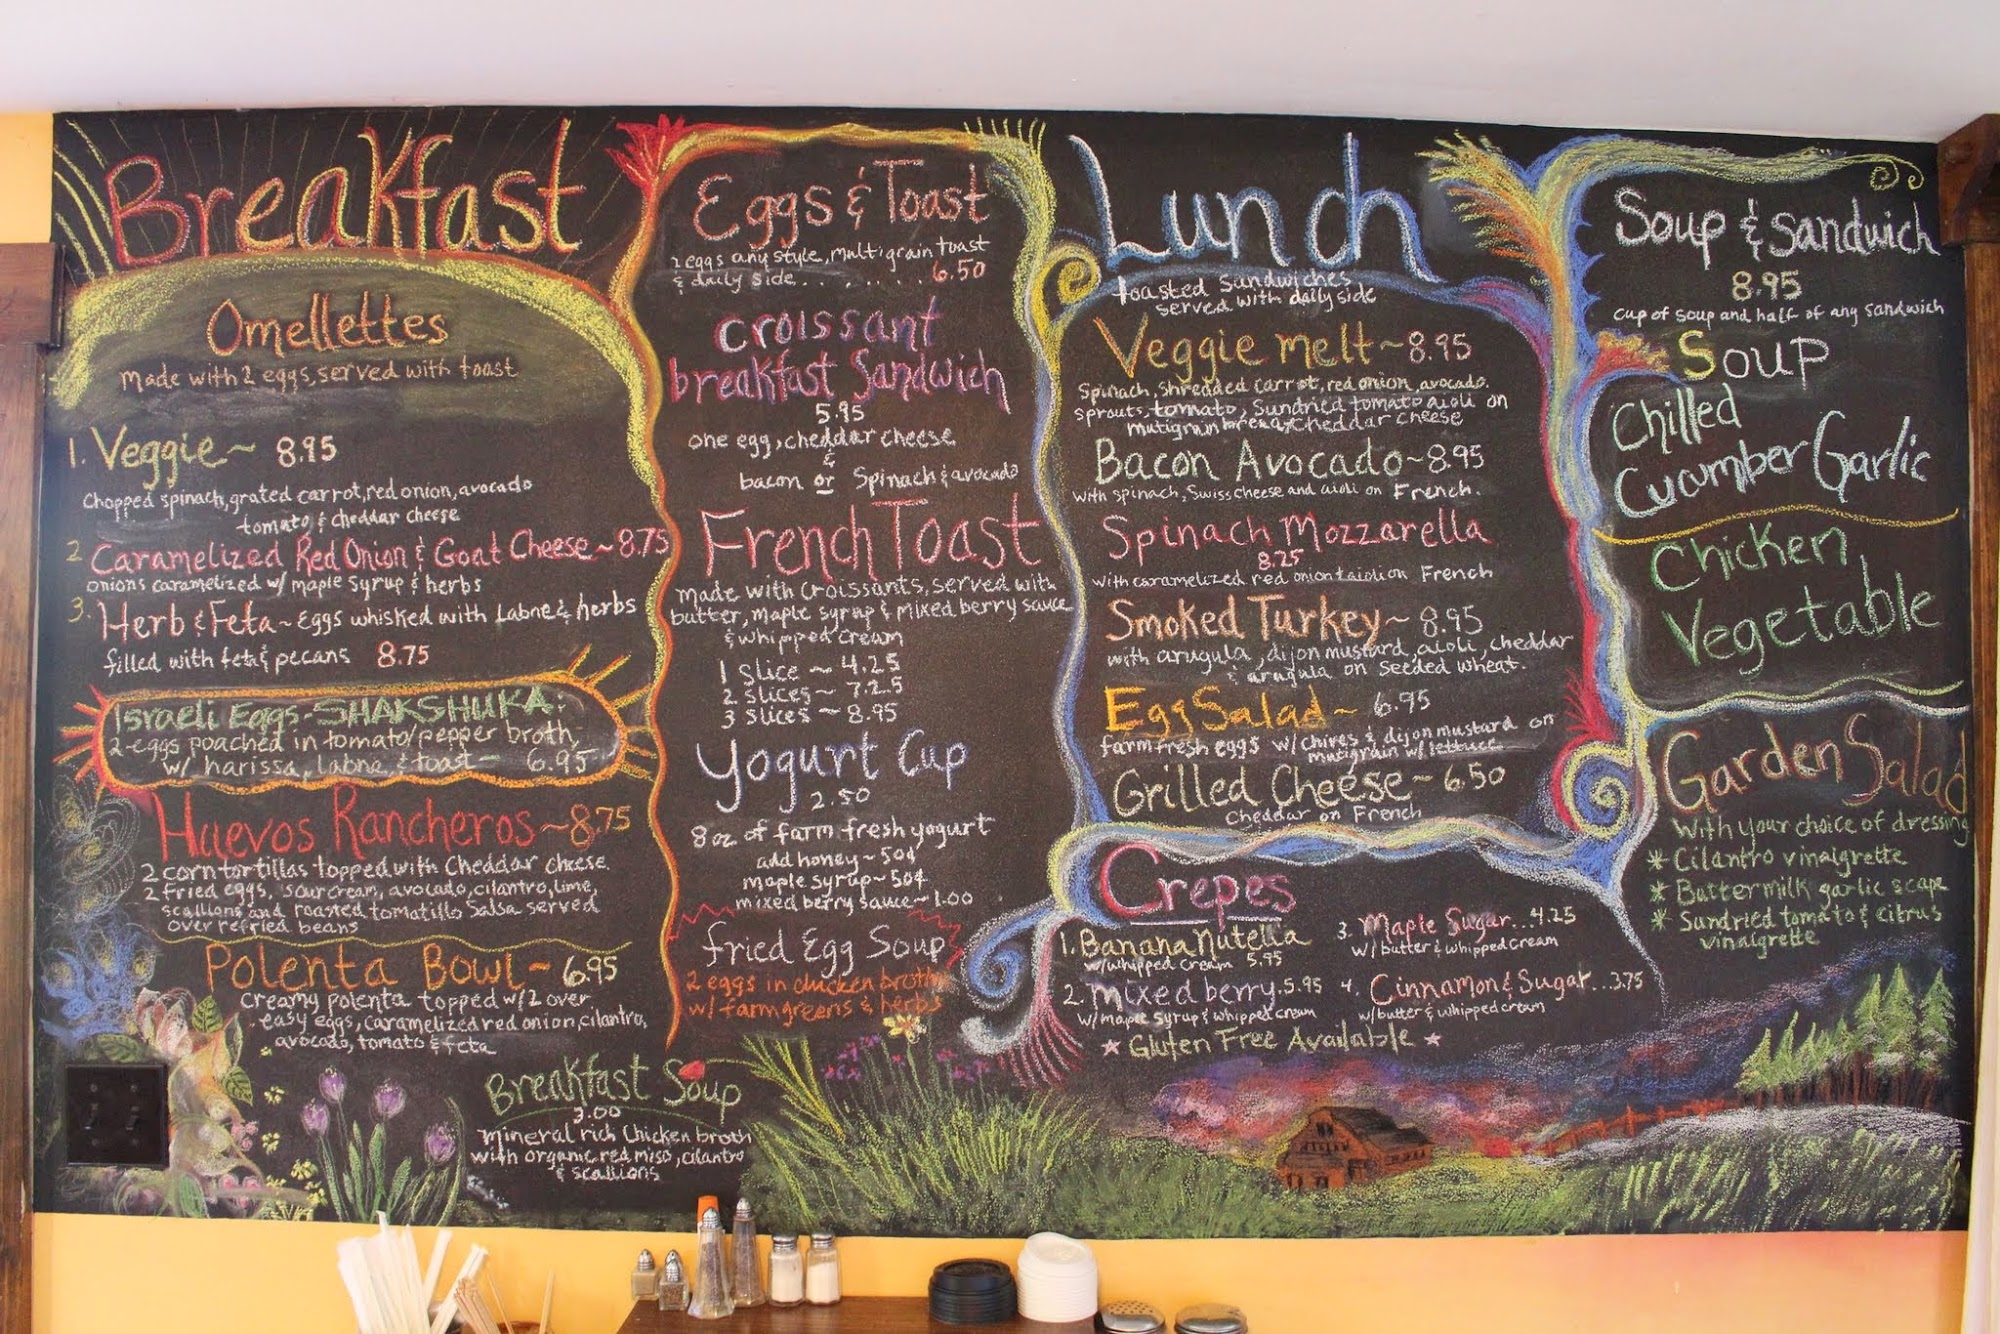 Breakfast
Omellettes
made with 2 eggs, served with toast
1. Veggie ~ 8.95
Chopped spinach, grated carrot, red onion, avocado
tomato, & cheddar cheese
2. Caramelized Red Onion & Goat Cheese ~ 8.75
onions caramelized w/ maple syrup & herbs
3. Herb & Feta ~ Eggs whisked with Labne & herbs
filled with feta & pecans 8.75
Israeli Eggs - SHAKSHUKA:
2-eggs poached in tomato/pepper broth,
w/ harissa, labne, & toast — 6.95
Huevos Rancheros ~ 8.75
2 corn tortillas topped with Cheddar cheese.
2 fried eggs, sour cream, avocado, cilantro, lime,
scallions and roasted tomatillo salsa served
over refried beans
Polenta Bowl ~ 6.95
creamy polenta topped w/ 2 over
easy eggs, caramelized red onion, cilantro,
avocado, tomato & feta
Breakfast Soup
3.00
mineral rich Chicken broth
with organic red miso, cilantro
& scallions
Eggs & Toast
2 eggs any style, multigrain toast
& daily side . . . . . . . . 6.50
Croissant
breakfast Sandwich
5.95
one egg, cheddar cheese
&
bacon or Spinach & avocado
French Toast
made with croissants, served with
butter, maple syrup & mixed berry sauce
& whipped cream
1 Slice ~ 4.25
2 Slices ~ 7.25
3 Slices ~ 8.95
Yogurt Cup
2.50
8 oz of farm fresh yogurt
add honey ~ 50¢
maple syrup ~ 50¢
mixed berry sauce ~ 1.00
fried Egg Soup
2 eggs in chicken broth
w/ farm greens & herbs
Lunch
toasted Sandwiches
served with daily side
Veggie melt ~ 8.95
Spinach, shredded carrot, red onion, avocado.
sprouts, tomato, Sundried tomato aioli on
mutigrain bread, cheddar cheese
Bacon Avocado ~ 8.95
with spinach, Swiss cheese and aioli on French.
Spinach Mozzarella
8.25
with caramelized red onion & aioli on French
Smoked Turkey ~ 8.95
with arugula, dijon mustard, aioli, cheddar
& arugula on seeded wheat.
Egg Salad ~ 6.95
farm fresh eggs w/ chives & dijon mustard on
mutigrain w/ lettuce
Grilled Cheese ~ 6.50
Cheddar on French
Crepes
1. Banana Nutella
w/ whipped cream 5.95
2. mixed berry . 5.95
w/ maple syrup & whipped cream
3. Maple Sugar...4.25
w/ butter & whipped cream
4. Cinnamon & Sugar...3.75
w/ butter & whipped cream
* Gluten Free Available *
Soup & Sandwich
8.95
cup of soup and half of any sandwich
Soup
Chilled
Cucumber Garlic
Chicken
Vegetable
Garden Salad
With your choice of dressing
* Cilantro vinaigrette
* Buttermilk garlic scape
* Sundried tomato & citrus
vinaigrette